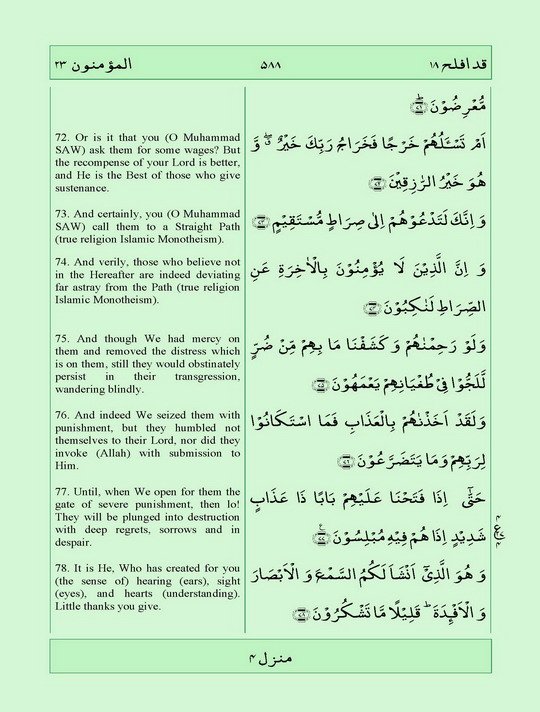 قد افلح ١٨
٥٨٨
المؤمنون ٢٣
مُّعْرِضُوْنَ
اَمْ تَسْـَٔلُهُمْ خَرْجًا فَخَرَاجُ رَبِّكَ خَيْرٌ ۖ وَّ
هُوَ خَيْرُ الرّٰزِقِيْنَ
وَ اِنَّكَ لَتَدْعُوْهُمْ اِلٰى صِرَاطٍ مُّسْتَقِيْمٍ
وَ اِنَّ الَّذِيْنَ لَا يُؤْمِنُوْنَ بِالْاٰخِرَةِ عَنِ
الصِّرَاطِ لَنٰكِبُوْنَ
وَلَوْ رَحِمْنٰهُمْ وَ كَشَفْنَا مَا بِهِمْ مِّنْ ضُرٍّ
لَّلَجُّوْا فِيْ طُغْيَانِهِمْ يَعْمَهُوْنَ
وَلَقَدْ اَخَذْنٰهُمْ بِالْعَذَابِ فَمَا اسْتَكَانُوْا
لِرَبِّهِمْ وَمَا يَتَضَرَّعُوْنَ
حَتّٰٓى اِذَا فَتَحْنَا عَلَيْهِمْ بَابًا ذَا عَذَابٍ
شَدِيْدٍ اِذَا هُمْ فِيْهِ مُبْلِسُوْنَ
وَ هُوَ الَّذِيْٓ اَنْشَاَ لَكُمُ السَّمْعَ وَ الْاَبْصَارَ
وَ الْاَفْـِٕدَةَ ؕ قَلِيْلًا مَّا تَشْكُرُوْنَ
72. Or is it that you (O Muhammad
SAW) ask them for some wages? But
the recompense of your Lord is better,
and He is the Best of those who give
sustenance.
73. And certainly, you (O Muhammad
SAW) call them to a Straight Path
(true religion Islamic Monotheism).
74. And verily, those who believe not
in the Hereafter are indeed deviating
far astray from the Path (true religion
Islamic Monotheism).
75. And though We had mercy on
them and removed the distress which
is on them, still they would obstinately
persist in their transgression,
wandering blindly.
76. And indeed We seized them with
punishment, but they humbled not
themselves to their Lord, nor did they
invoke (Allah) with submission to
Him.
77. Until, when We open for them the
gate of severe punishment, then lo!
They will be plunged into destruction
with deep regrets, sorrows and in
despair.
78. It is He, Who has created for you
(the sense of) hearing (ears), sight
(eyes), and hearts (understanding).
Little thanks you give.
منزل ٤